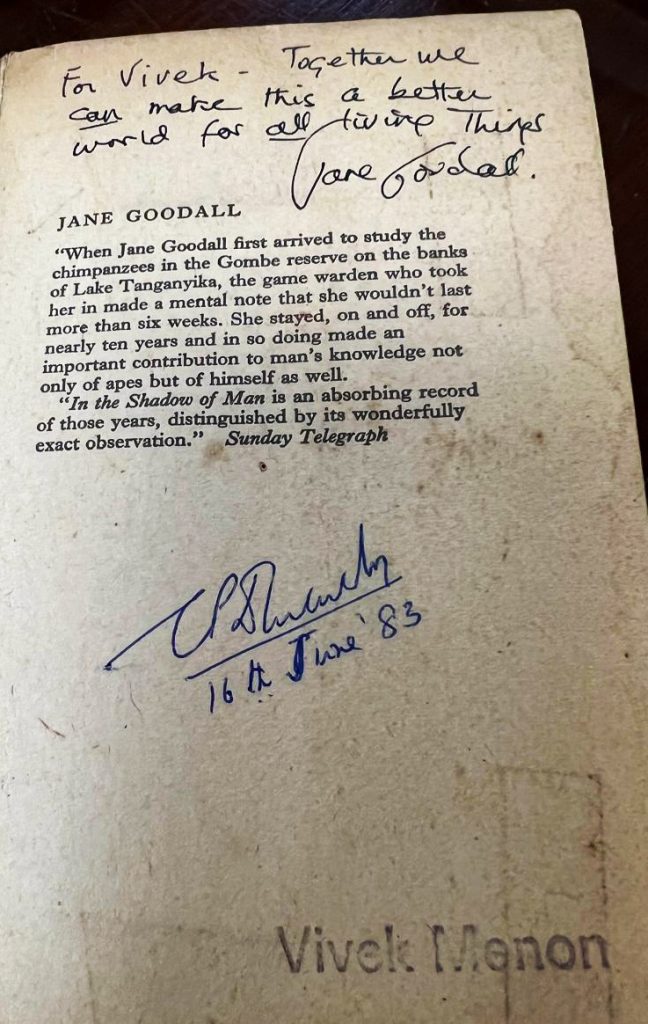 For Vivek - Together we
can make this a better
world for all living Things
Jane Goodall.
JANE GOODALL
"When Jane Goodall first arrived to study the
chimpanzees in the Gombe reserve on the banks
of Lake Tanganyika, the game warden who took
her in made a mental note that she wouldn't last
more than six weeks. She stayed, on and off, for
nearly ten years and in so doing made an
important contribution to man's knowledge not
only of apes but of himself as well.
"In the Shadow of Man is an absorbing record
of those years, distinguished by its wonderfully
exact observation." Sunday Telegraph
16th June '83
Vivek Menon